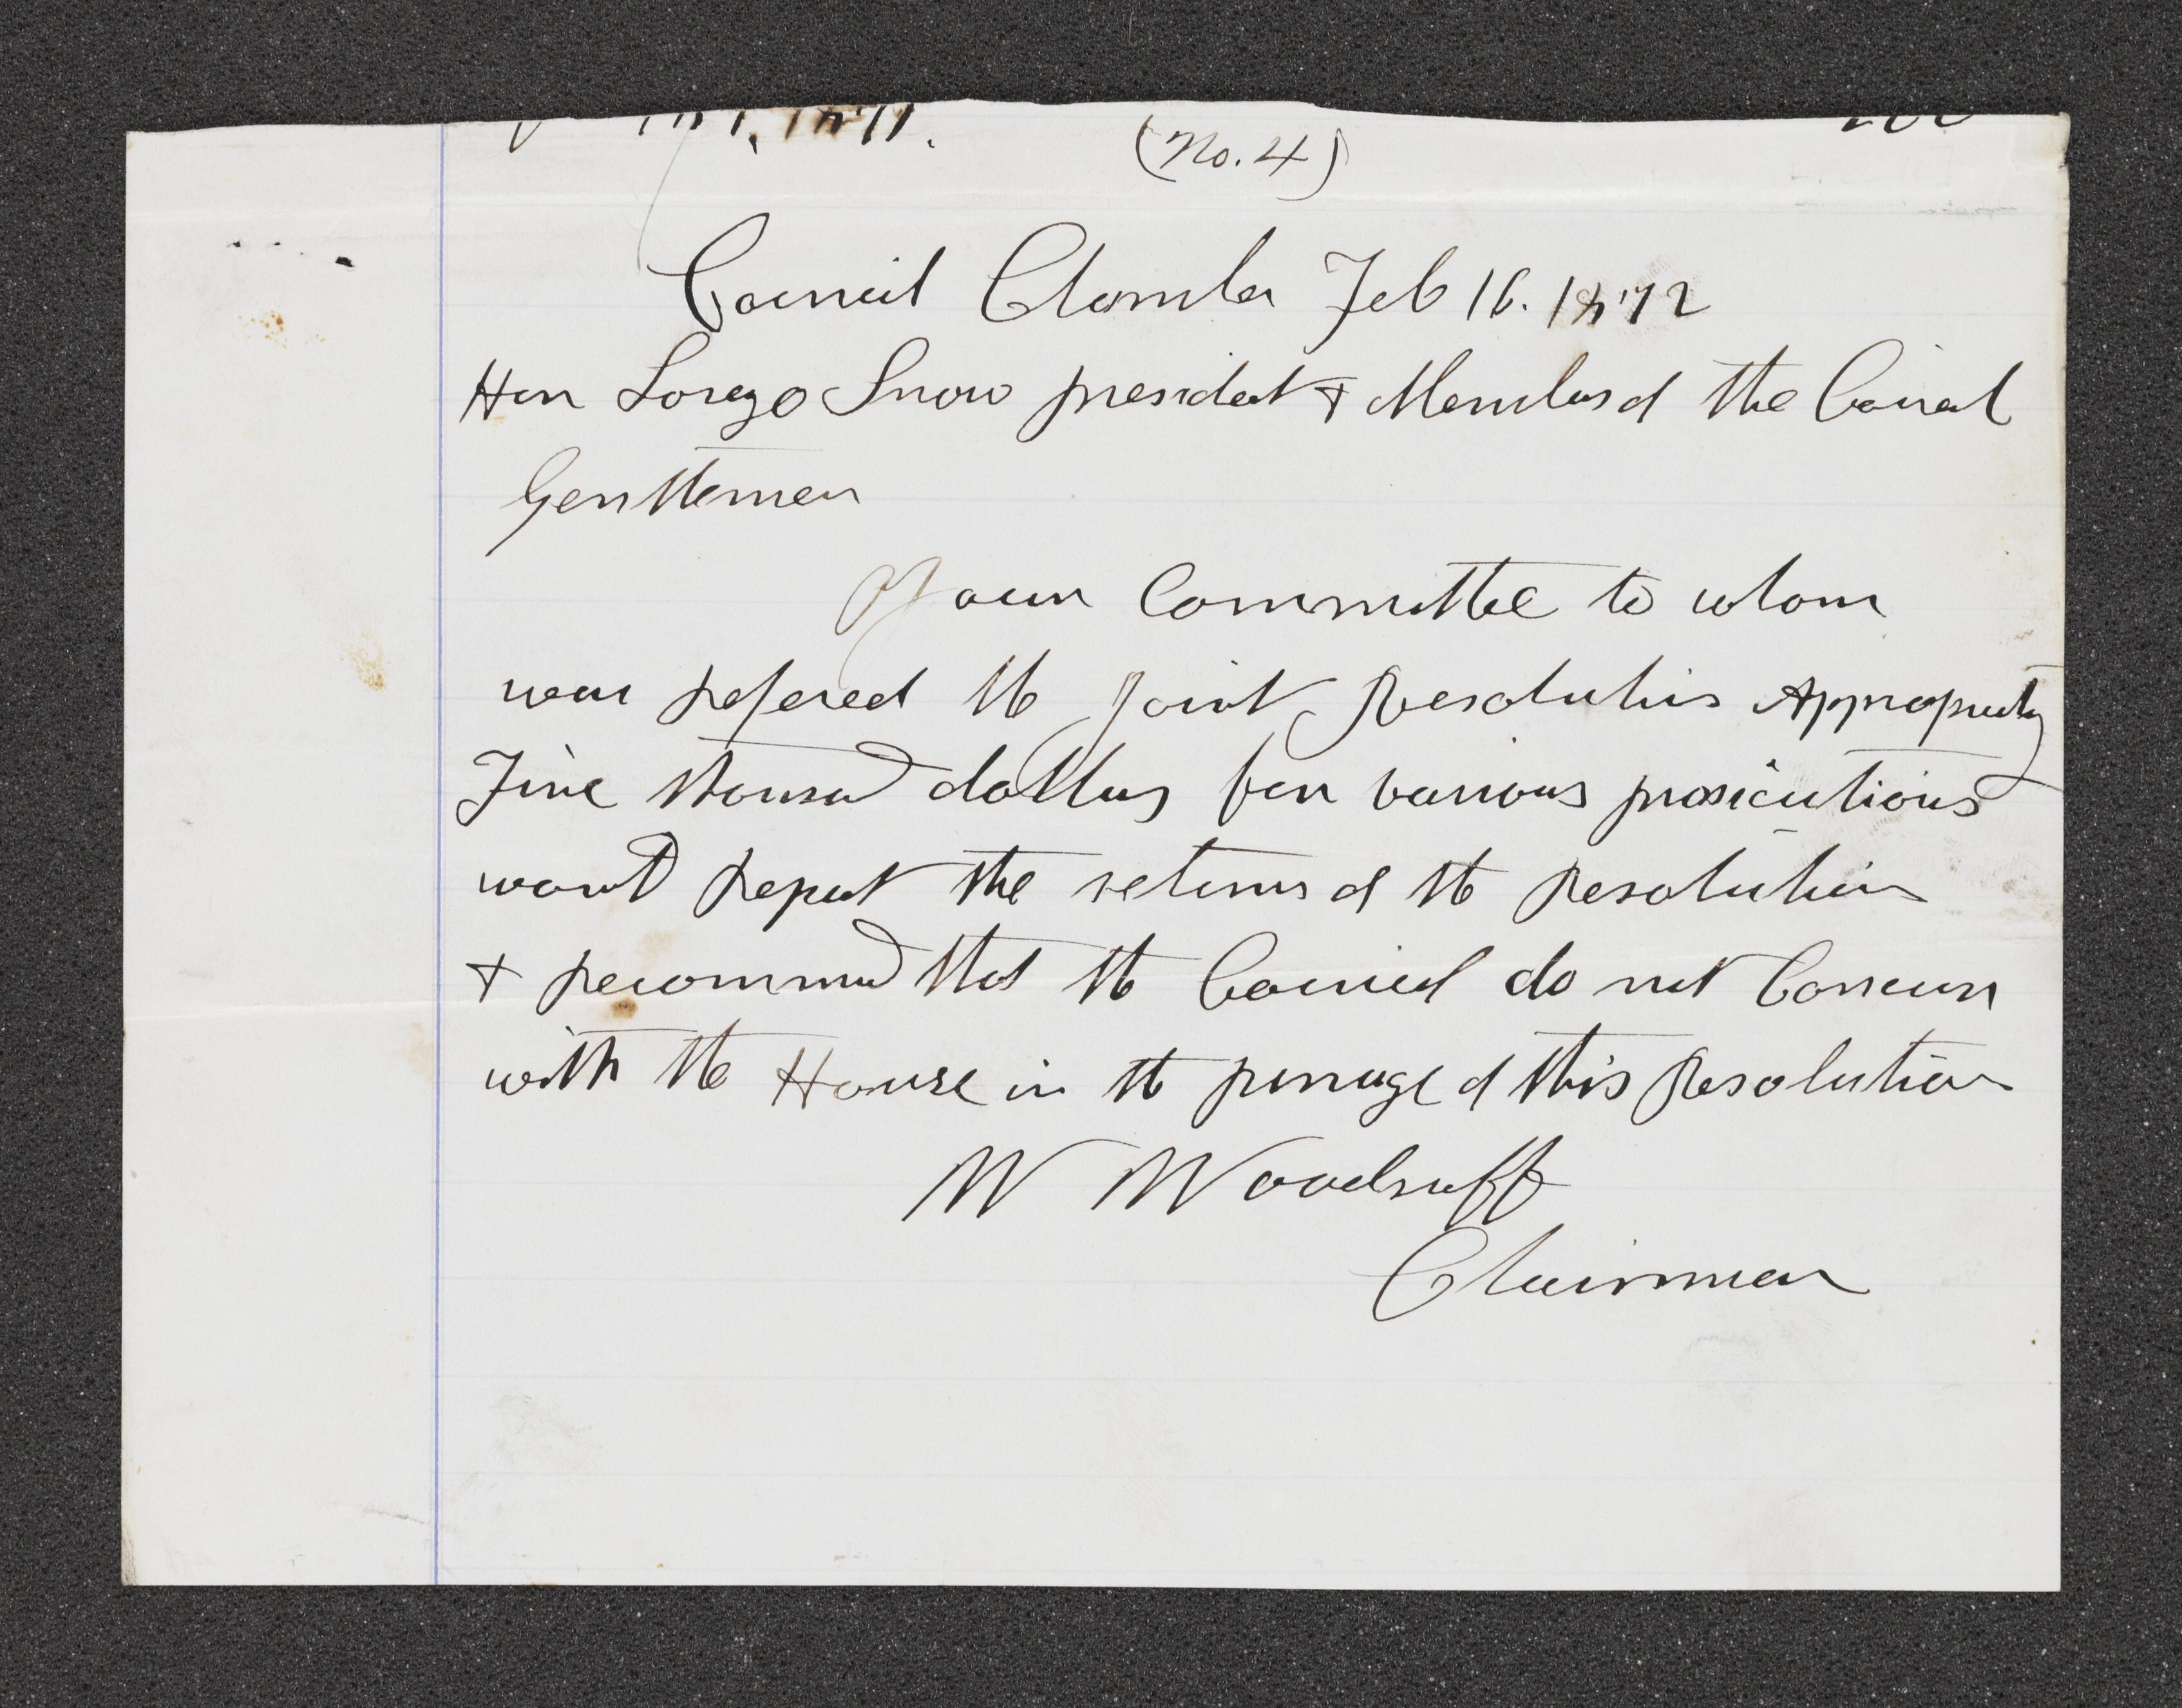 (No. 4)
Council Chamber Feb 16. 1872
Hon Lorezo Snow president & Members of the Council
Gentlemen
Your Committee to whom
was refered the Joint Resolution Appropriating
Five thousand dollars for various prosicutions
would Report the return of the Resolution
& recommend that the Council do not Concur
with the House in the passage of this Resolution
W Woodruff
Chairman